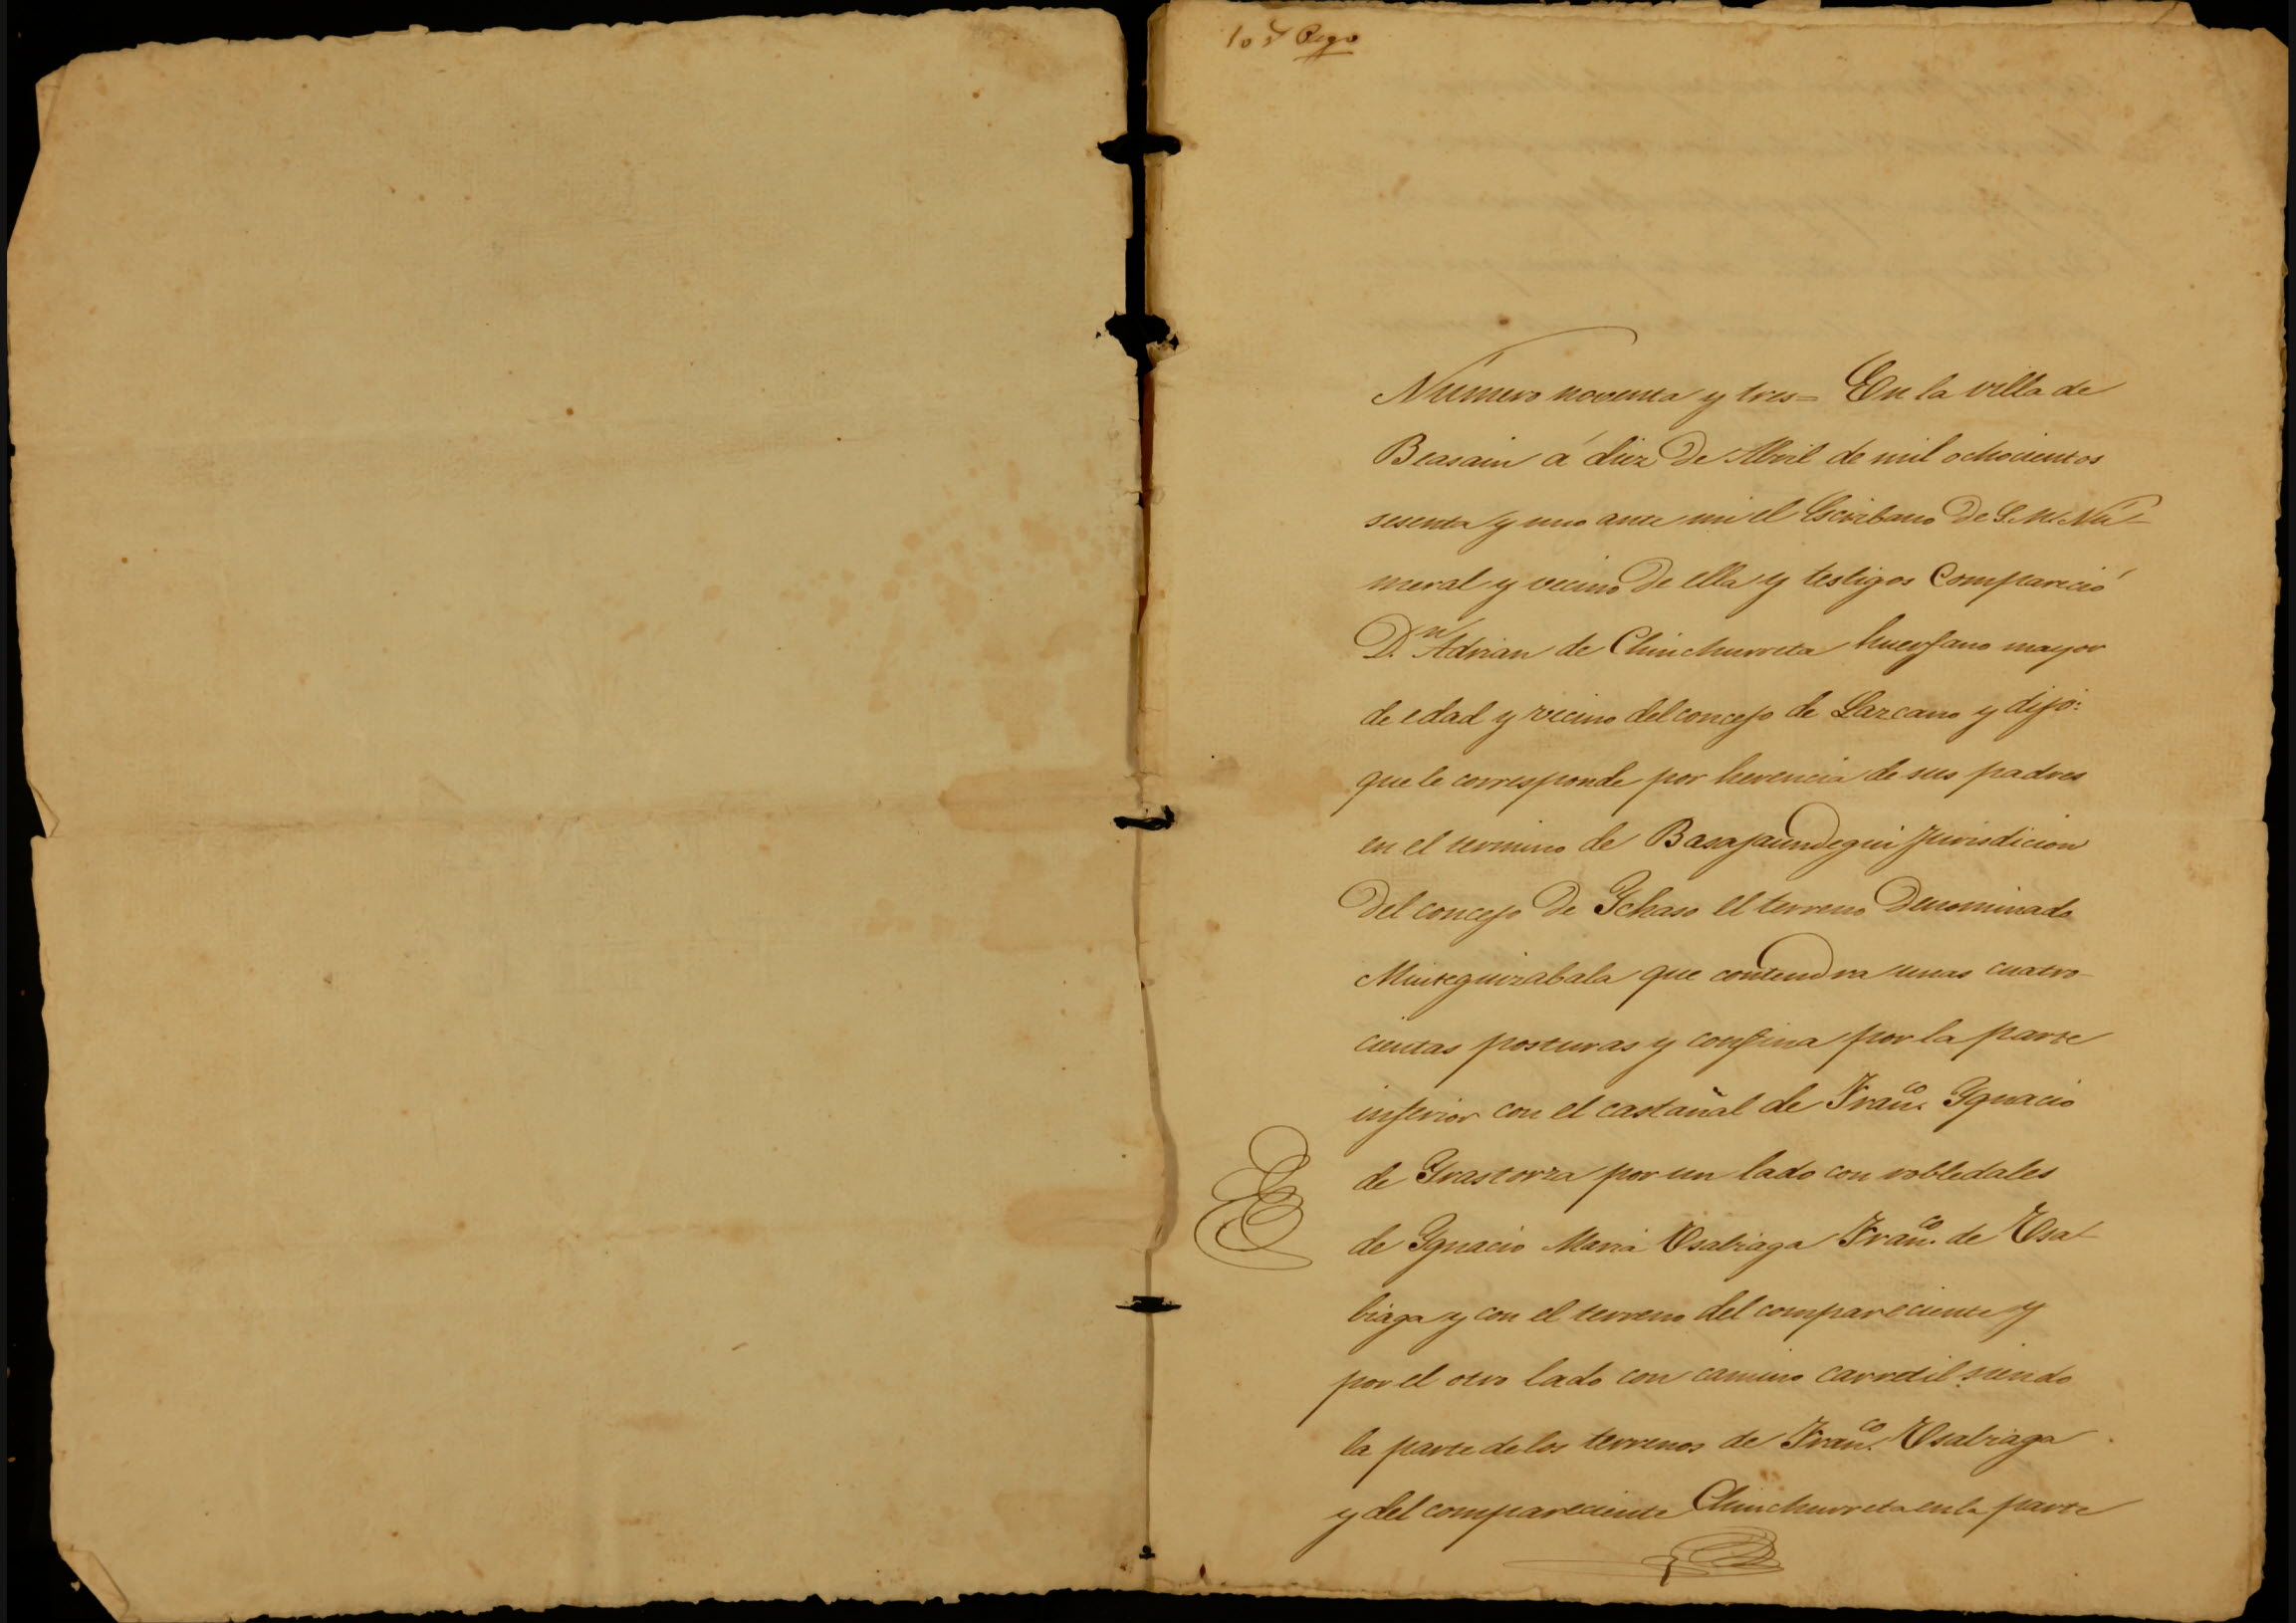 Numero noventa y tres= En la villa de
Beasain á diez de Abril de mil ochocientos
sesenta y uno ante mi el Escribano de S. M. Nu-
meral y vecino de ella y testigos Compareció
D.n Adrian de Chinchurreta huerfano mayor
de edad y vecino del concejo de Lazcano y dijo:
que le corresponde por herencia de sus padres
en el termino de Basajaundegui Jurisdicion
del concejo de Ychaso el terreno denominado
Minteguizabala que contendra unas cuatro-
cientas posturas y confina por la parte
inferior con el castañal de Franco. Ygnacio
de Yrastorza por un lado con robledales
de Ygnacio Maria Usabiaga Franco. de Usa-
biaga y con el terreno del compareciente y
por el otro lado con camino carretil siendo
la parte de los terrenos de Franco. Usabiaga
y del compareciente Chinchurreta en la parte